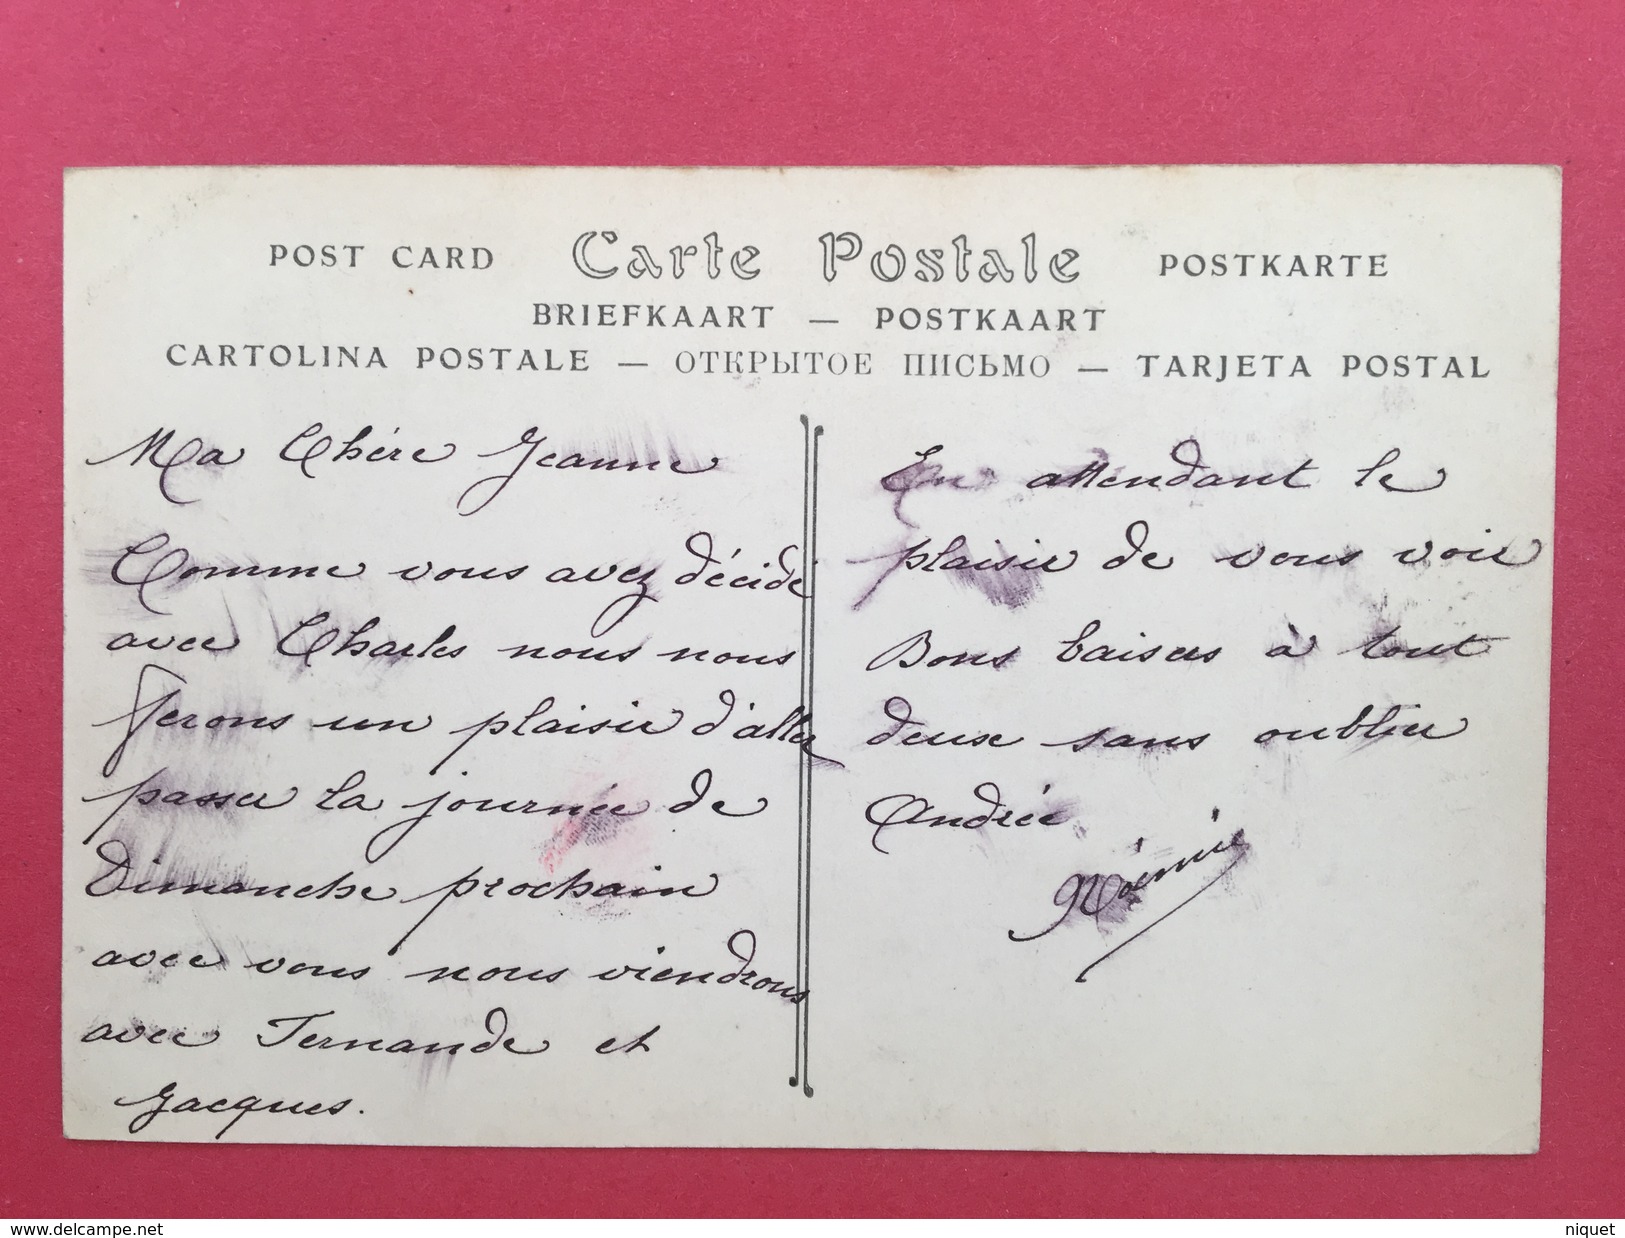 POST CARD Carte Postale POSTKARTE
BRIEFKAART — POSTKAART
CARTOLINA POSTALE — ОТКРЫТОЕ ПИСЬМО — TARJETA POSTAL
Ma Chère Jeanne
Comme vous avez décidé
avec Charles nous nous
ferons un plaisir d'aller
passer la journée de
Dimanche prochain
avec vous nous viendrons
avec Fernande et
Jacques.
En attendant le
plaisir de vous voir
Bons baisers à tout
deux sans oublier
Andrée
Noémie
www.delcampe.net
niquet